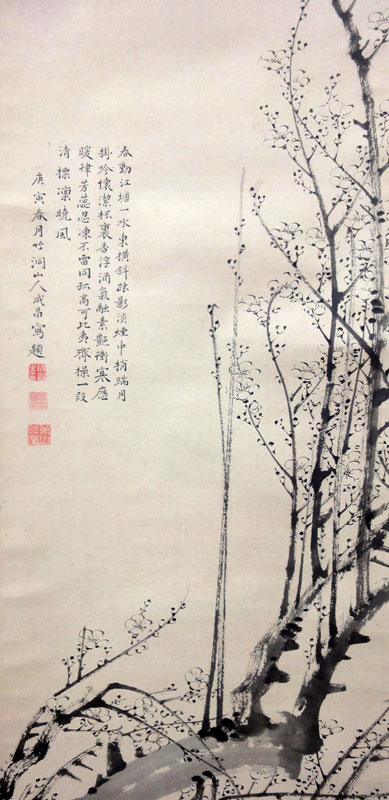 春動江塘一水東橫斜疎影淡煙中梢端月
掛吟懷潔杯裏香浮酒氣融素艷衝寒應
暖律芳蕊忍凍不雷同孤高可比夷齊操一段
清標凜曉風
庚寅春月竹洞山人成昌寫題